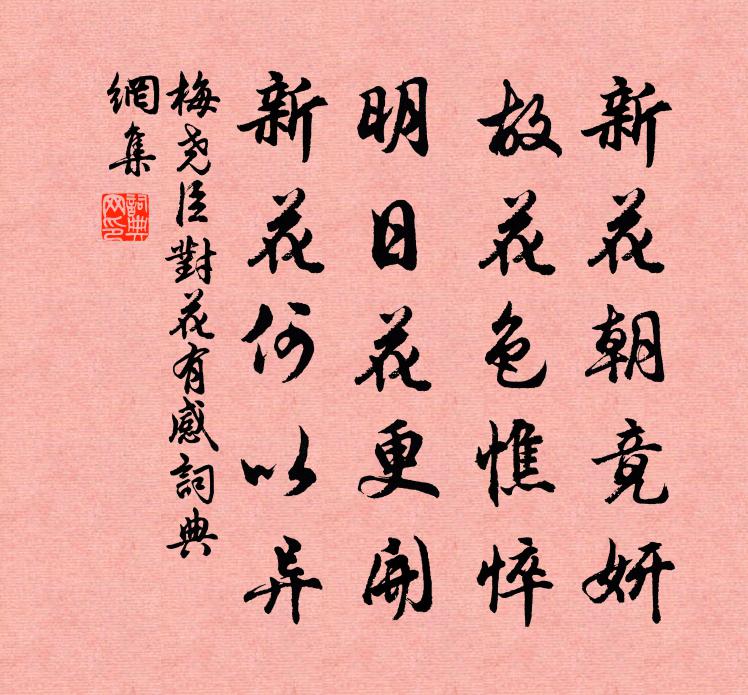 新花朝竟妍
故花色憔悴
明日花更開
新花何以异
梅尧臣對花有感詞典
網集
詞典
网印